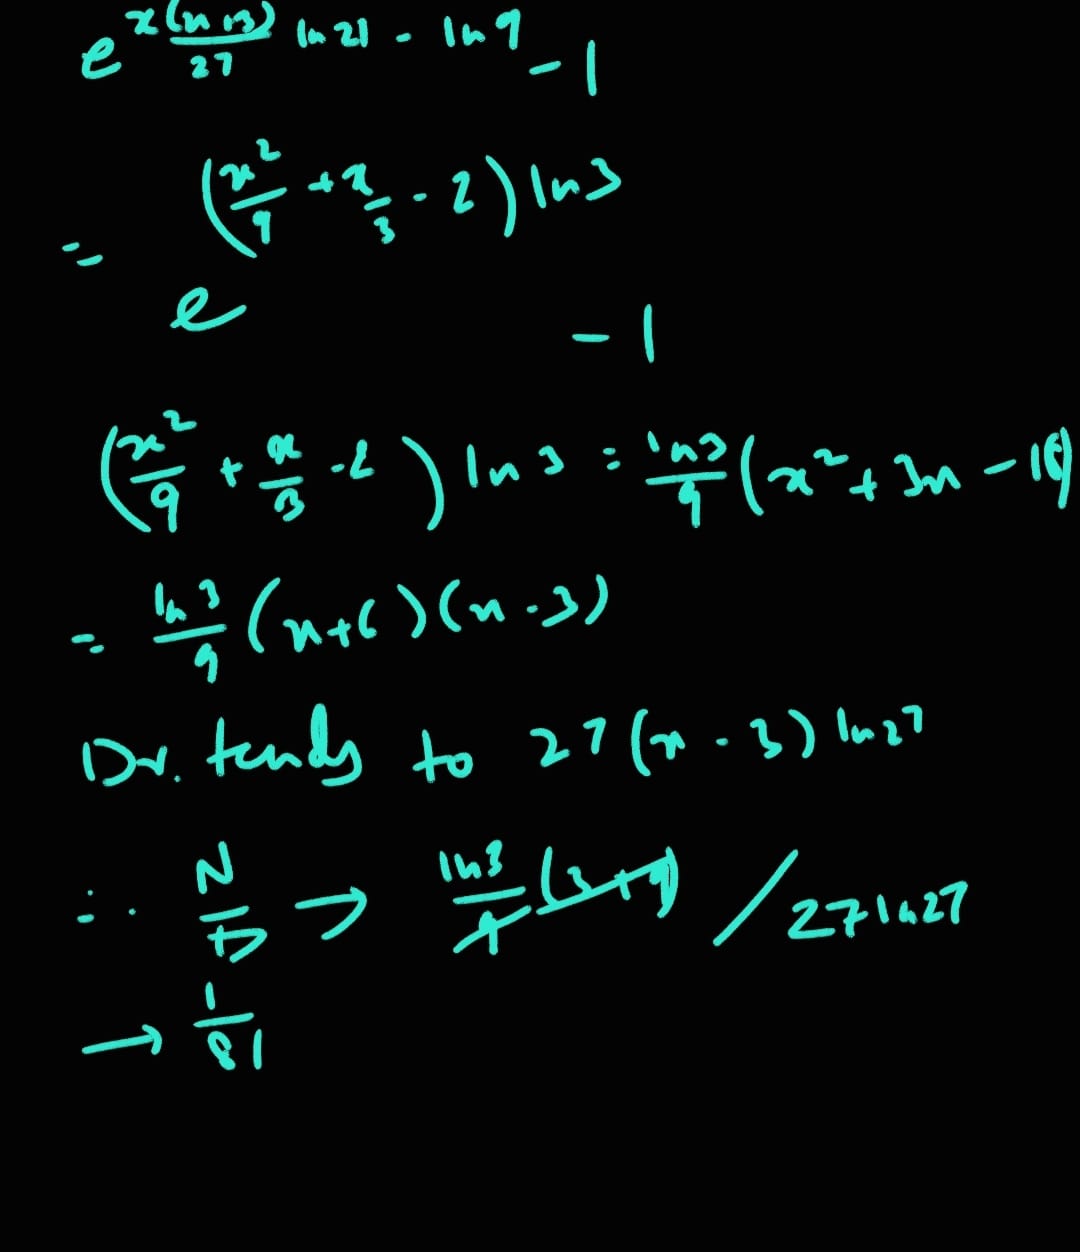 e^{\frac{x(x+3)}{27} ln 27 - ln 9} - 1
= e^{(\frac{x^2}{9} + \frac{x}{3} - 2) ln 3} - 1
(\frac{x^2}{9} + \frac{x}{3} - 2) ln 3 = \frac{ln 3}{9} (x^2 + 3x - 18)
= \frac{ln 3}{9} (x+6)(x-3)
Dr. tends to 27(x-3) ln 27
∴ \frac{N}{D} → \frac{ln 3}{9} (3+6) / 27 ln 27
→ \frac{1}{81}